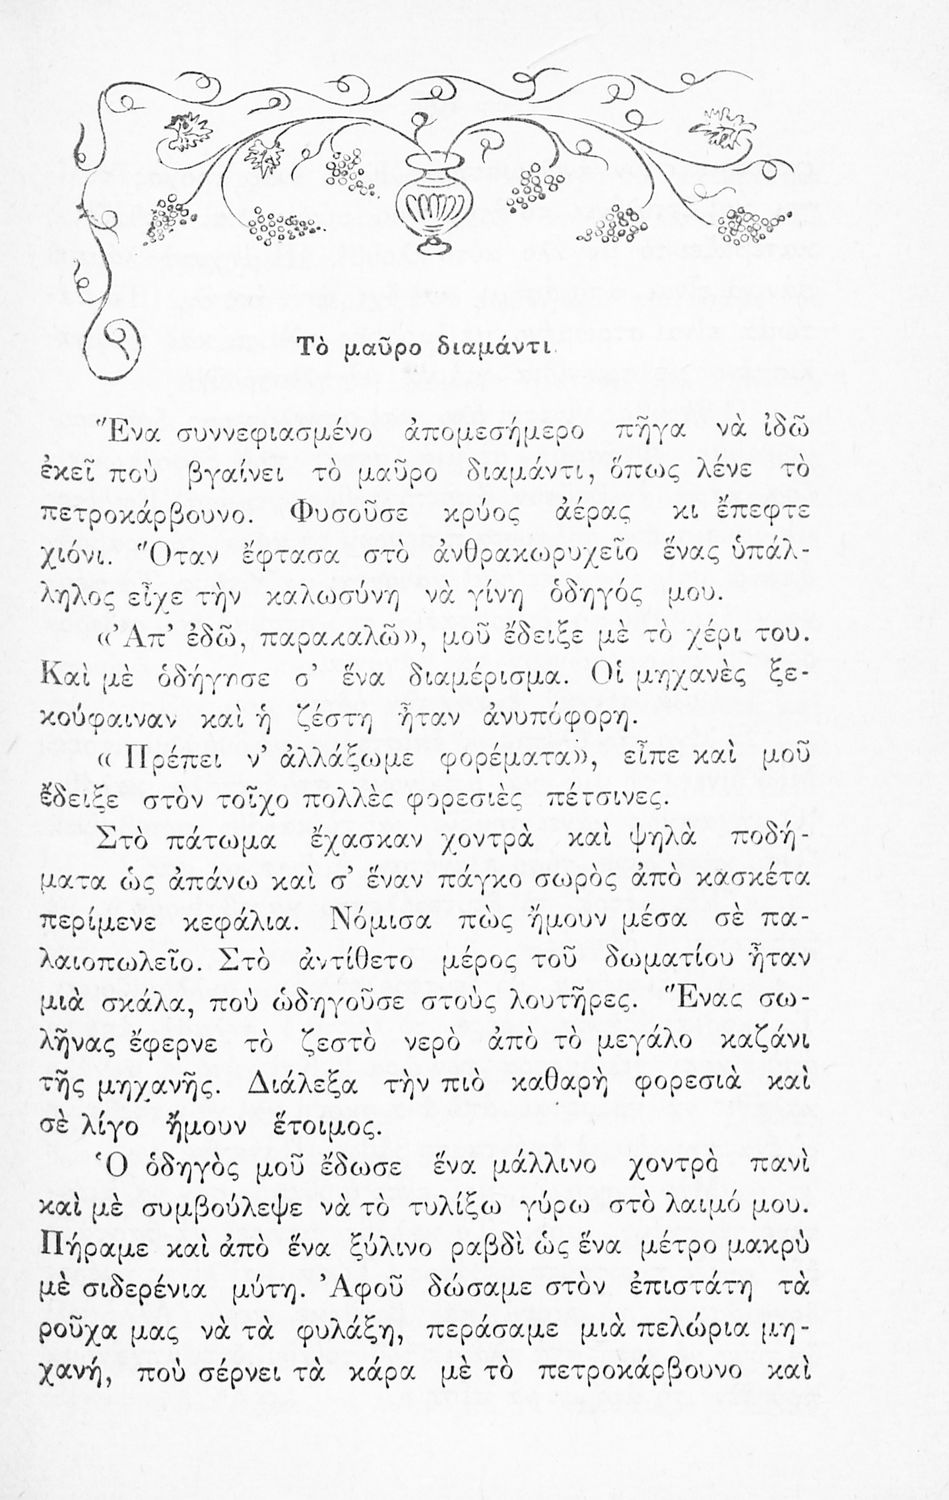 Τὸ μαῦρο διαμάντι
Ἕνα συννεφιασμένο ἀπομεσήμερο πῆγα νὰ ἰδῶ
ἐκεῖ ποὺ βγαίνει τὸ μαῦρο διαμάντι, ὅπως λένε τὸ
πετροκάρβουνο. Φυσοῦσε κρύος ἀέρας κι ἔπεφτε
χιόνι. Ὅταν ἔφτασα στὸ ἀνθρακωρυχεῖο ἕνας ὑπάλ-
ληλος εἶχε τὴν καλωσύνη νὰ γίνη ὁδηγός μου.
«Ἀπ’ ἐδῶ, παρακαλῶ», μοῦ ἔδειξε μὲ τὸ χέρι του.
Καὶ μὲ ὁδήγησε σ’ ἕνα διαμέρισμα. Οἱ μηχανὲς ξε-
κούφαιναν καὶ ἡ ζέστη ἦταν ἀνυπόφορη.
« Πρέπει ν’ ἀλλάξωμε φορέματα», εἶπε καὶ μοῦ
ἔδειξε στὸν τοῖχο πολλὲς φορεσιὲς πέτσινες.
Στὸ πάτωμα ἔχασκαν χοντρὰ καὶ ψηλὰ ποδή-
ματα ὡς ἀπάνω καὶ σ’ ἕναν πάγκο σωρὸς ἀπὸ κασκέτα
περίμενε κεφάλια. Νόμισα πὼς ἤμουν μέσα σὲ πα-
λαιοπωλεῖο. Στὸ ἀντίθετο μέρος τοῦ δωματίου ἦταν
μιὰ σκάλα, ποὺ ὡδηγοῦσε στοὺς λουτῆρες. Ἕνας σω-
λῆνας ἔφερνε τὸ ζεστὸ νερὸ ἀπὸ τὸ μεγάλο καζάνι
τῆς μηχανῆς. Διάλεξα τὴν πιὸ καθαρὴ φορεσιὰ καὶ
σὲ λίγο ἤμουν ἕτοιμος.
Ὁ ὁδηγὸς μοῦ ἔδωσε ἕνα μάλλινο χοντρὸ πανὶ
καὶ μὲ συμβούλεψε νὰ τὸ τυλίξω γύρω στὸ λαιμό μου.
Πήραμε καὶ ἀπὸ ἕνα ξύλινο ραβδὶ ὡς ἕνα μέτρο μακρὺ
μὲ σιδερένια μύτη. Ἀφοῦ δώσαμε στὸν ἐπιστάτη τὰ
ροῦχα μας νὰ τὰ φυλάξη, περάσαμε μιὰ πελώρια μη-
χανή, ποὺ σέρνει τὰ κάρα μὲ τὸ πετροκάρβουνο καὶ